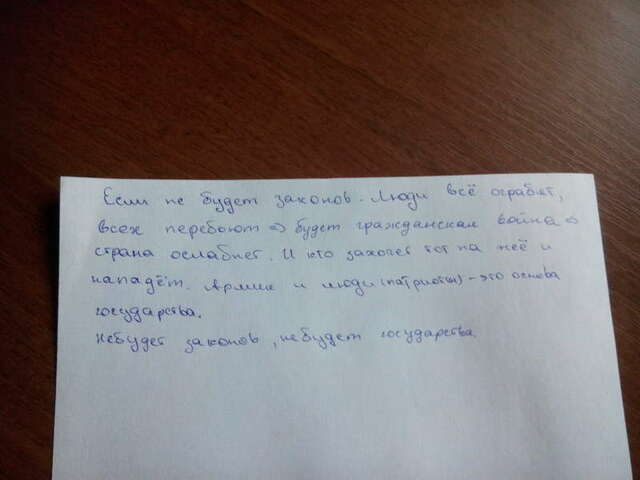 Если не будет законов. Люди всё ограбят,
всех перебьют => будет гражданская война =>
страна ослабнет. И кто захочет тот на неё и
нападёт. Армия и люди (патриоты) - это основа
государства.
Небудет законов, небудет государства.